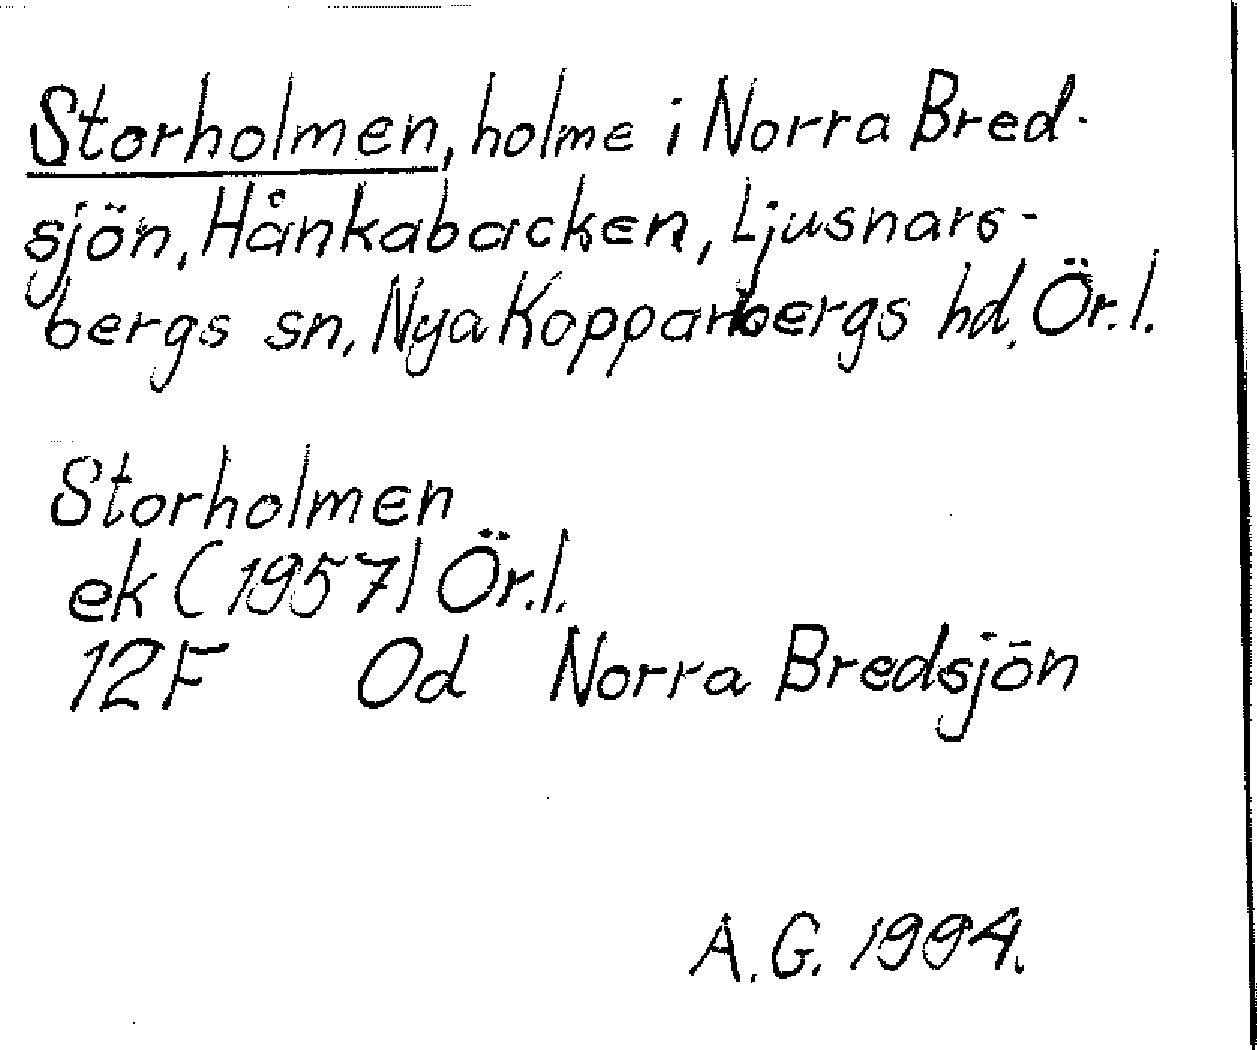 Storholmen, holme i Norra Bred-
sjön, Hånkabacken, Ljusnars-
bergs sn, Nya Kopparbergs hd, Ör.l.
Storholmen
ek (1957) Ör.l.
12F Od Norra Bredsjön
A.G. 1994.